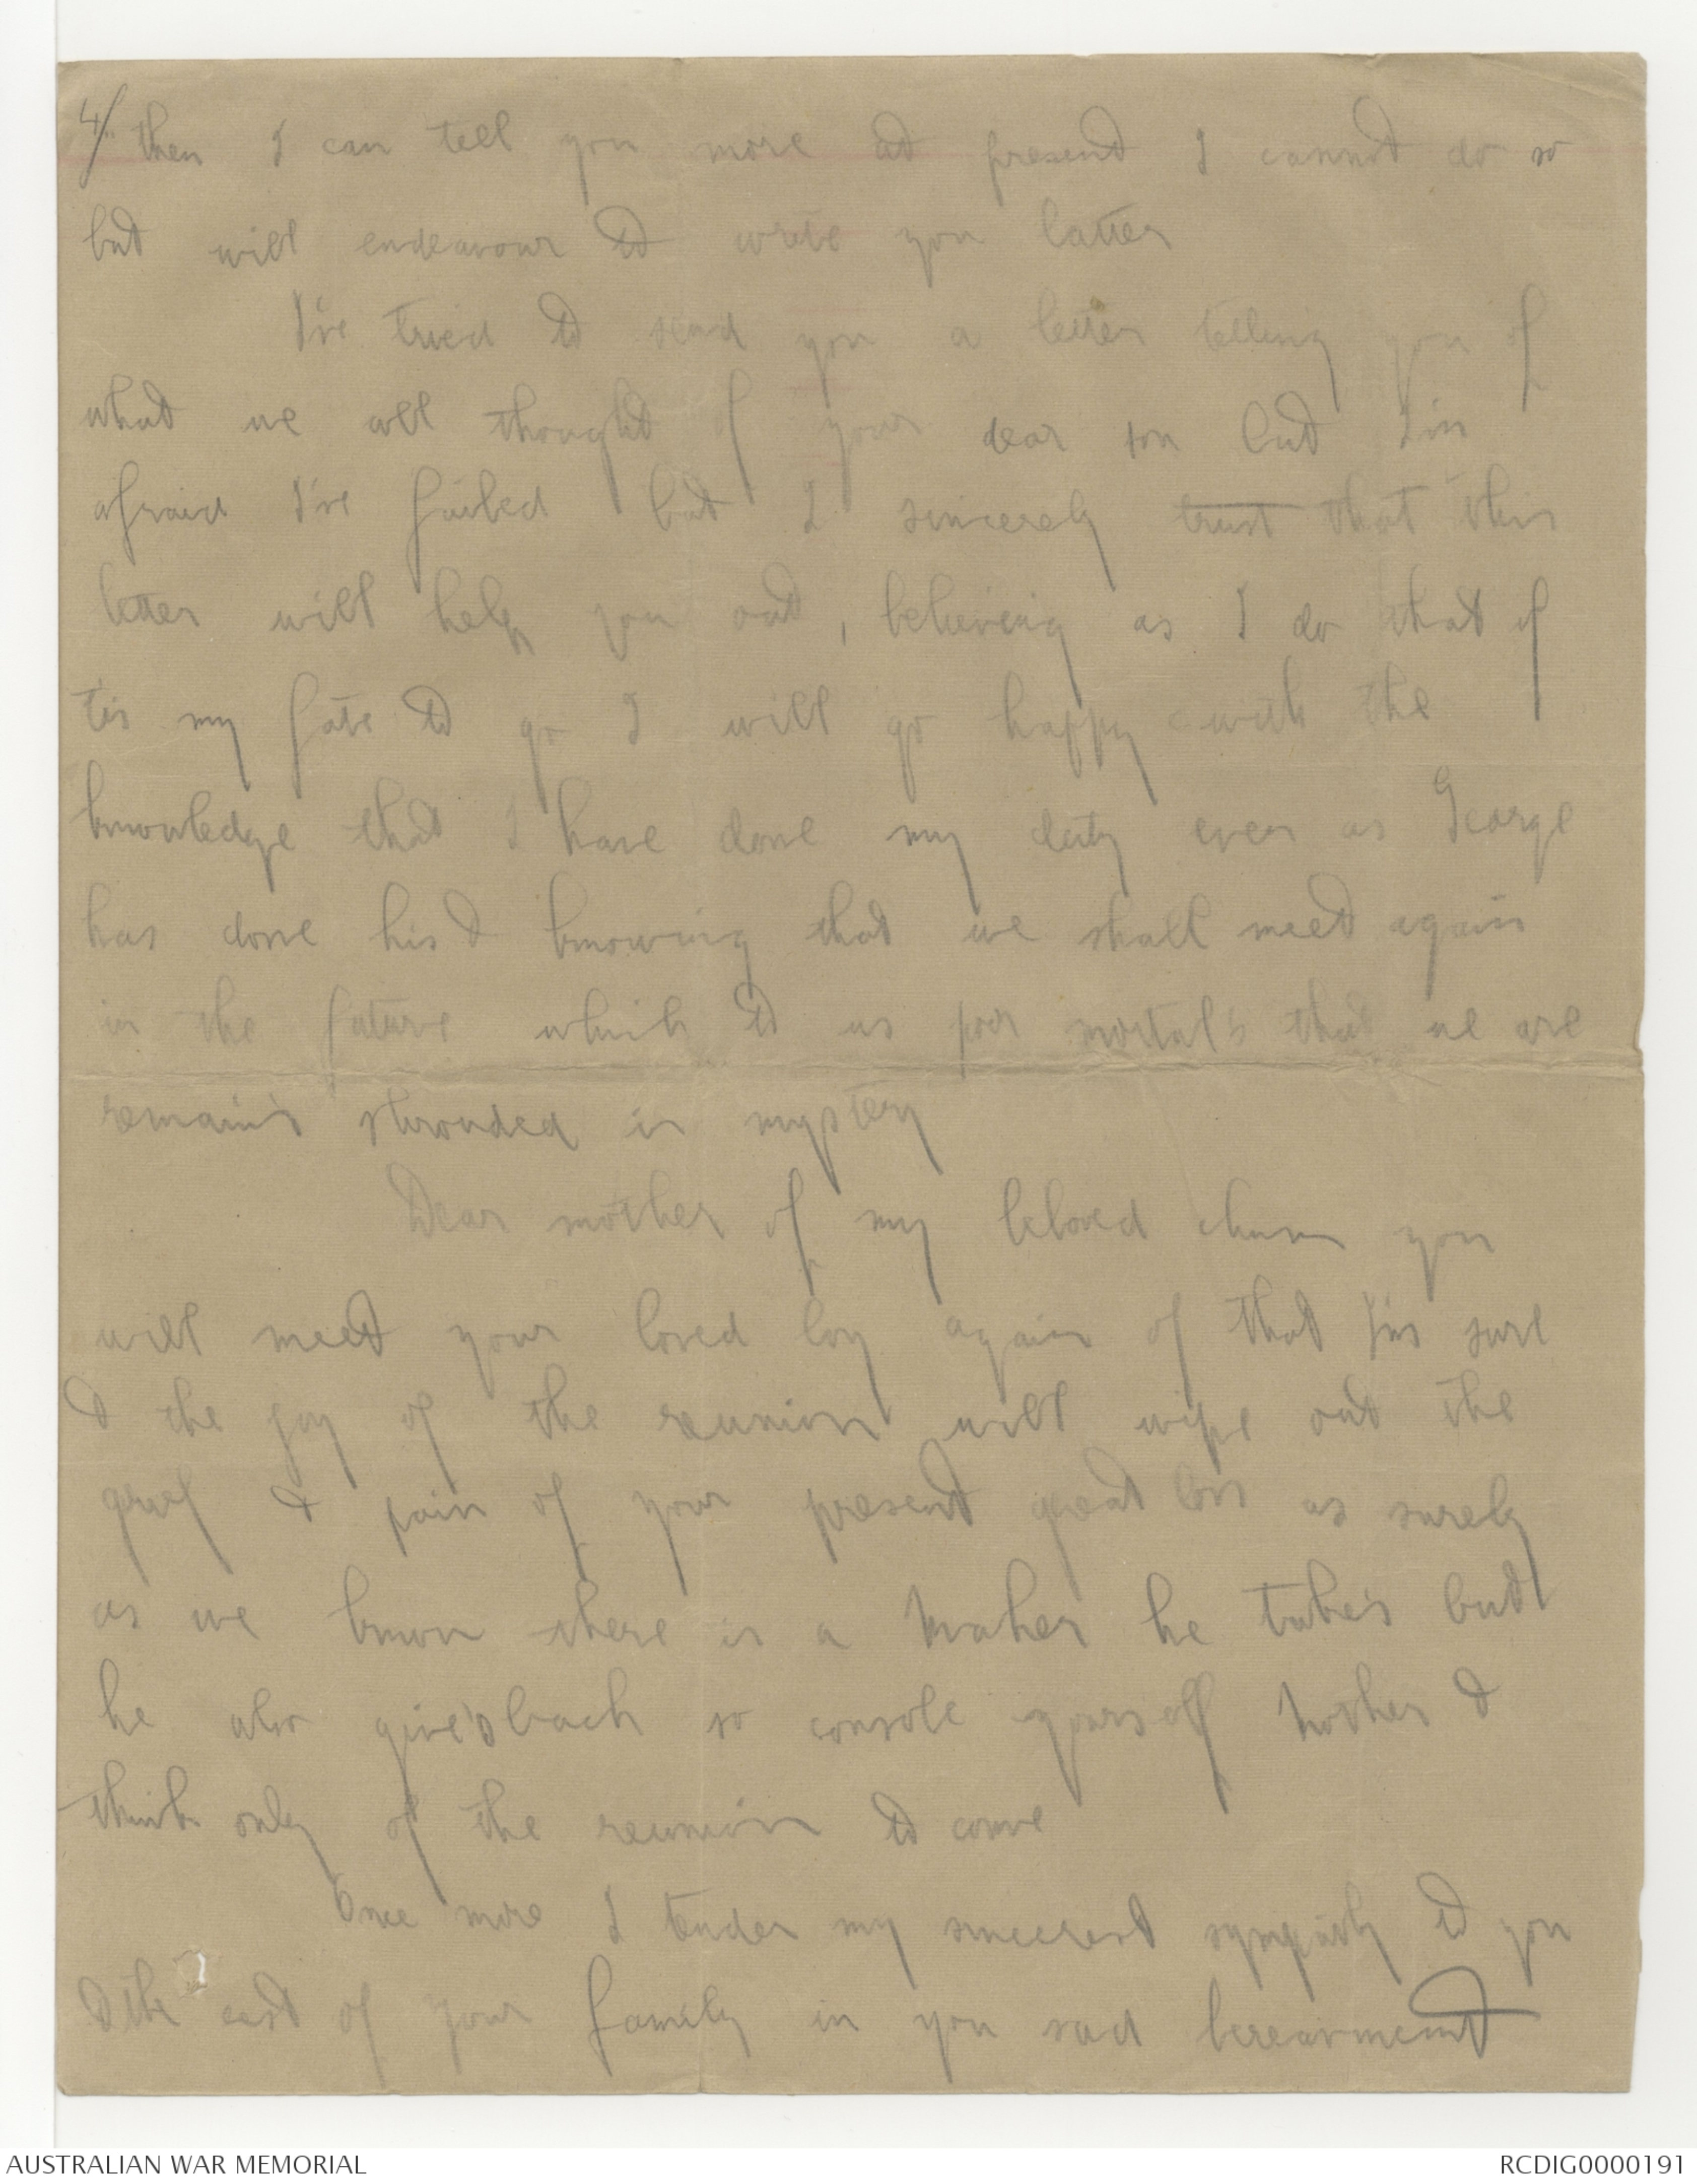 4/ then I can tell you more at present I cannot do so
but will endeavour to write you latter
I've tried to send you a letter telling you of
what we all thought of your dear son but I'm
afraid I've failed but I sincerely trust that this
letter will help you out, believing as I do that if
tis my fate to go I will go happy with the
knowledge that I have done my duty even as George
has done his & knowing that we shall meet again
in the future which to us poor mortal's that we are
remain's shrouded in mystery
Dear mother of my beloved chum you
will meet your loved boy again of that I'm sure
& the joy of the reunion will wipe out the
grief & pain of your present great loss as surely
as we know there is a Maker he take's but
he also give's back so console yourself Mother &
think only of the reunion to come
Once more I tender my sincerest sympathy to you
& the rest of your family in you sad bereavment
AUSTRALIAN WAR MEMORIAL
RCDIG0000191